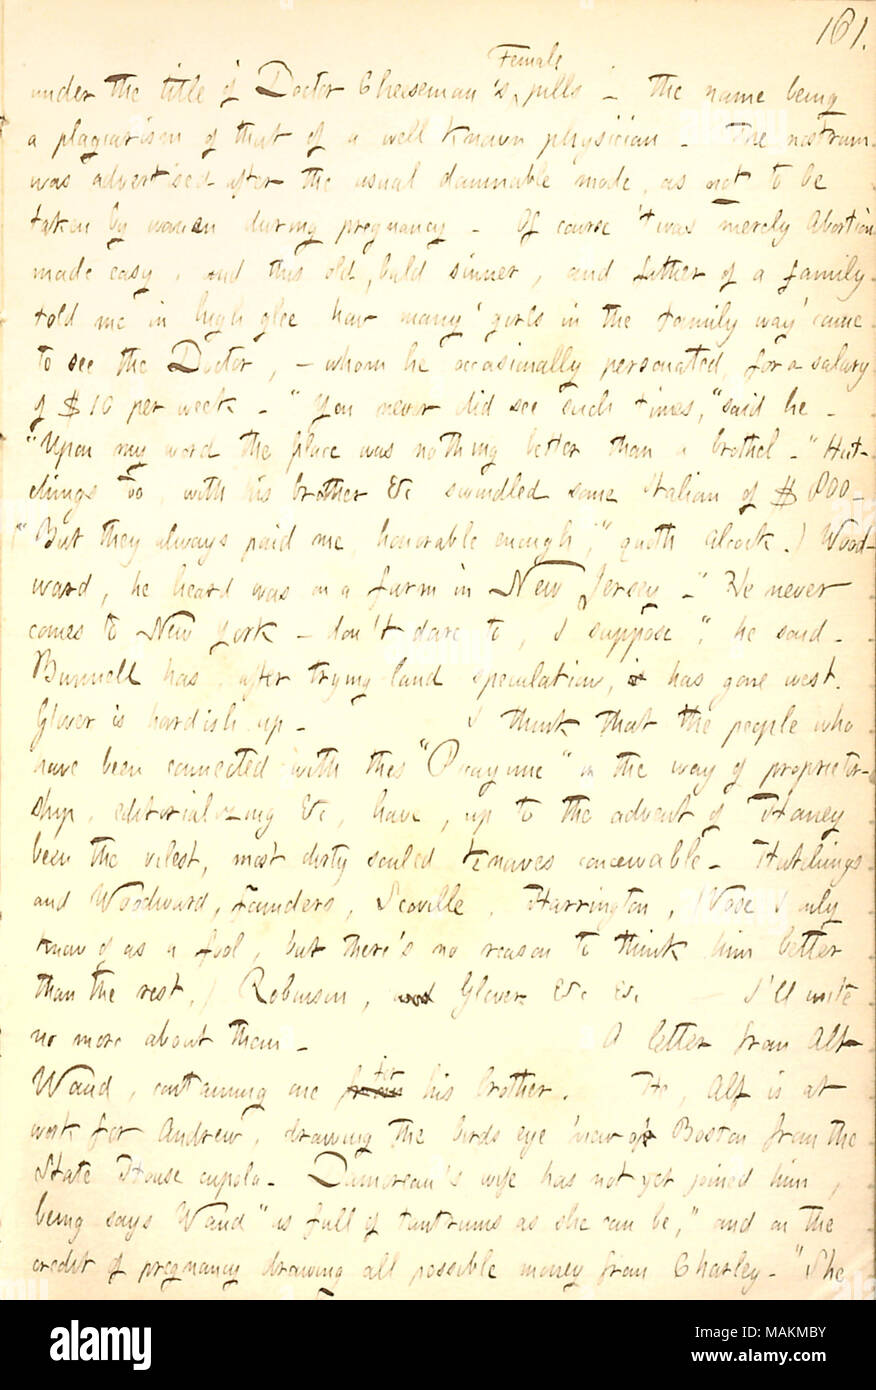 161.
Female
under the title of Doctor Cheeseman's, pills - the name being
a plagiarism of that of a well known physician - The nostrum
was advertised after the usual damnable mode, as not to be
taken by women during pregnancy - Of course 'twas merely Abortion
made easy, and this old, bald sinner, and father of a family
told me in high glee how many 'girls in the family way' came
to see the Doctor, - whom he occasionally personated, for a salary
of $10 per week - "You never did see such times," said he -
"Upon my word the place was nothing better than a brothel -" Hut-
chings too, with his brother &c swindled some Italian of $800 -
("But they always paid me, honorable enough;" quoth Alcock.) Wood-
ward, he heard was on a farm in New Jersey - "He never
comes to New York - don't dare to, I suppose", he said -
Bunnell has, after trying land speculation, is has gone west.
Glover is hardish up - I think that the people who
have been connected with this "Picayune" in the way of proprietor-
ship, editorializing &c, have, up to the advent of Haney
been the vilest, most dirty souled knaves conceivable - Hutchings
and Woodward, founders, Scoville, Harrington, (Vose I only
know of as a fool, but there's no reason to think him better
than the rest,) Robinson, and Glover &c &c - I'll write
no more about them - A letter from Alf
Waud, containing one from for his brother. He, Alf is at
work for Andrew, drawing the birds eye view of Boston from the
State House cupola - Damoreau's wife has not yet joined him,
being says Waud "as full of tantrums as she can be," and on the
credit of pregnancy drawing all possible money from Charley - "She
alamy
Image ID: MAKMBY
www.alamy.com